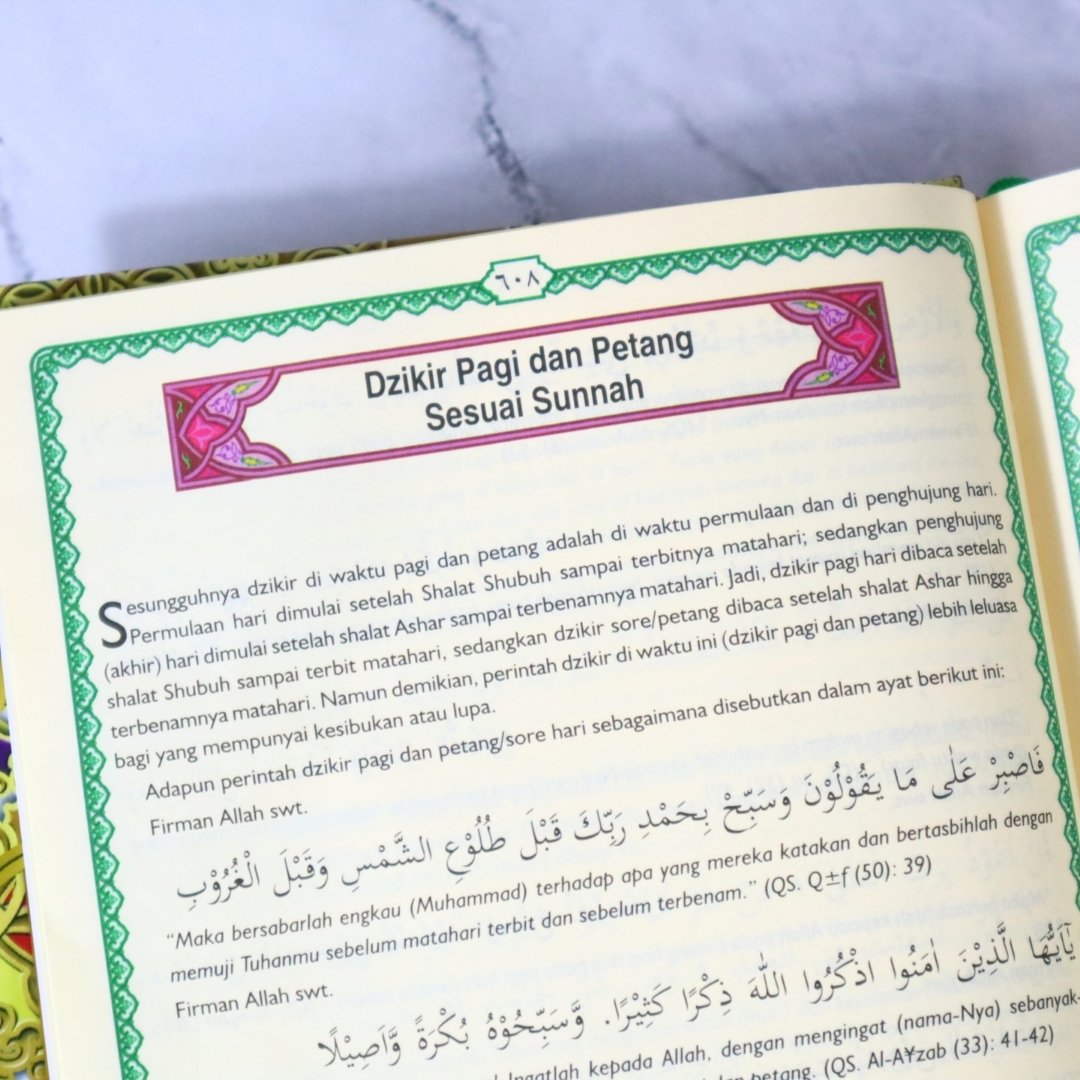 ٦٠٨
Dzikir Pagi dan Petang
Sesuai Sunnah
Sesungguhnya dzikir di waktu pagi dan petang adalah di waktu permulaan dan di penghujung hari.
Permulaan hari dimulai setelah Shalat Shubuh sampai terbitnya matahari; sedangkan penghujung
(akhir) hari dimulai setelah shalat Ashar sampai terbenamnya matahari. Jadi, dzikir pagi hari dibaca setelah
shalat Shubuh sampai terbit matahari, sedangkan dzikir sore/petang dibaca setelah shalat Ashar hingga
terbenamnya matahari. Namun demikian, perintah dzikir di waktu ini (dzikir pagi dan petang) lebih leluasa
bagi yang mempunyai kesibukan atau lupa.
Adapun perintah dzikir pagi dan petang/sore hari sebagaimana disebutkan dalam ayat berikut ini:
Firman Allah swt.
فَاصْبِرْ عَلٰى مَا يَقُوْلُوْنَ وَسَبِّحْ بِحَمْدِ رَبِّكَ قَبْلَ طُلُوْعِ الشَّمْسِ وَقَبْلَ الْغُرُوْبِ
“Maka bersabarlah engkau (Muhammad) terhadap apa yang mereka katakan dan bertasbihlah dengan
memuji Tuhanmu sebelum matahari terbit dan sebelum terbenam.” (QS. Q±f (50): 39)
Firman Allah swt.
يٰٓاَيُّهَا الَّذِيْنَ اٰمَنُوا اذْكُرُوا اللّٰهَ ذِكْرًا كَثِيْرًا. وَّسَبِّحُوْهُ بُكْرَةً وَّاَصِيْلًا
Ingatlah kepada Allah, dengan mengingat (nama-Nya) sebanyak-
dan petang. (QS. Al-A¥zab (33): 41-42)